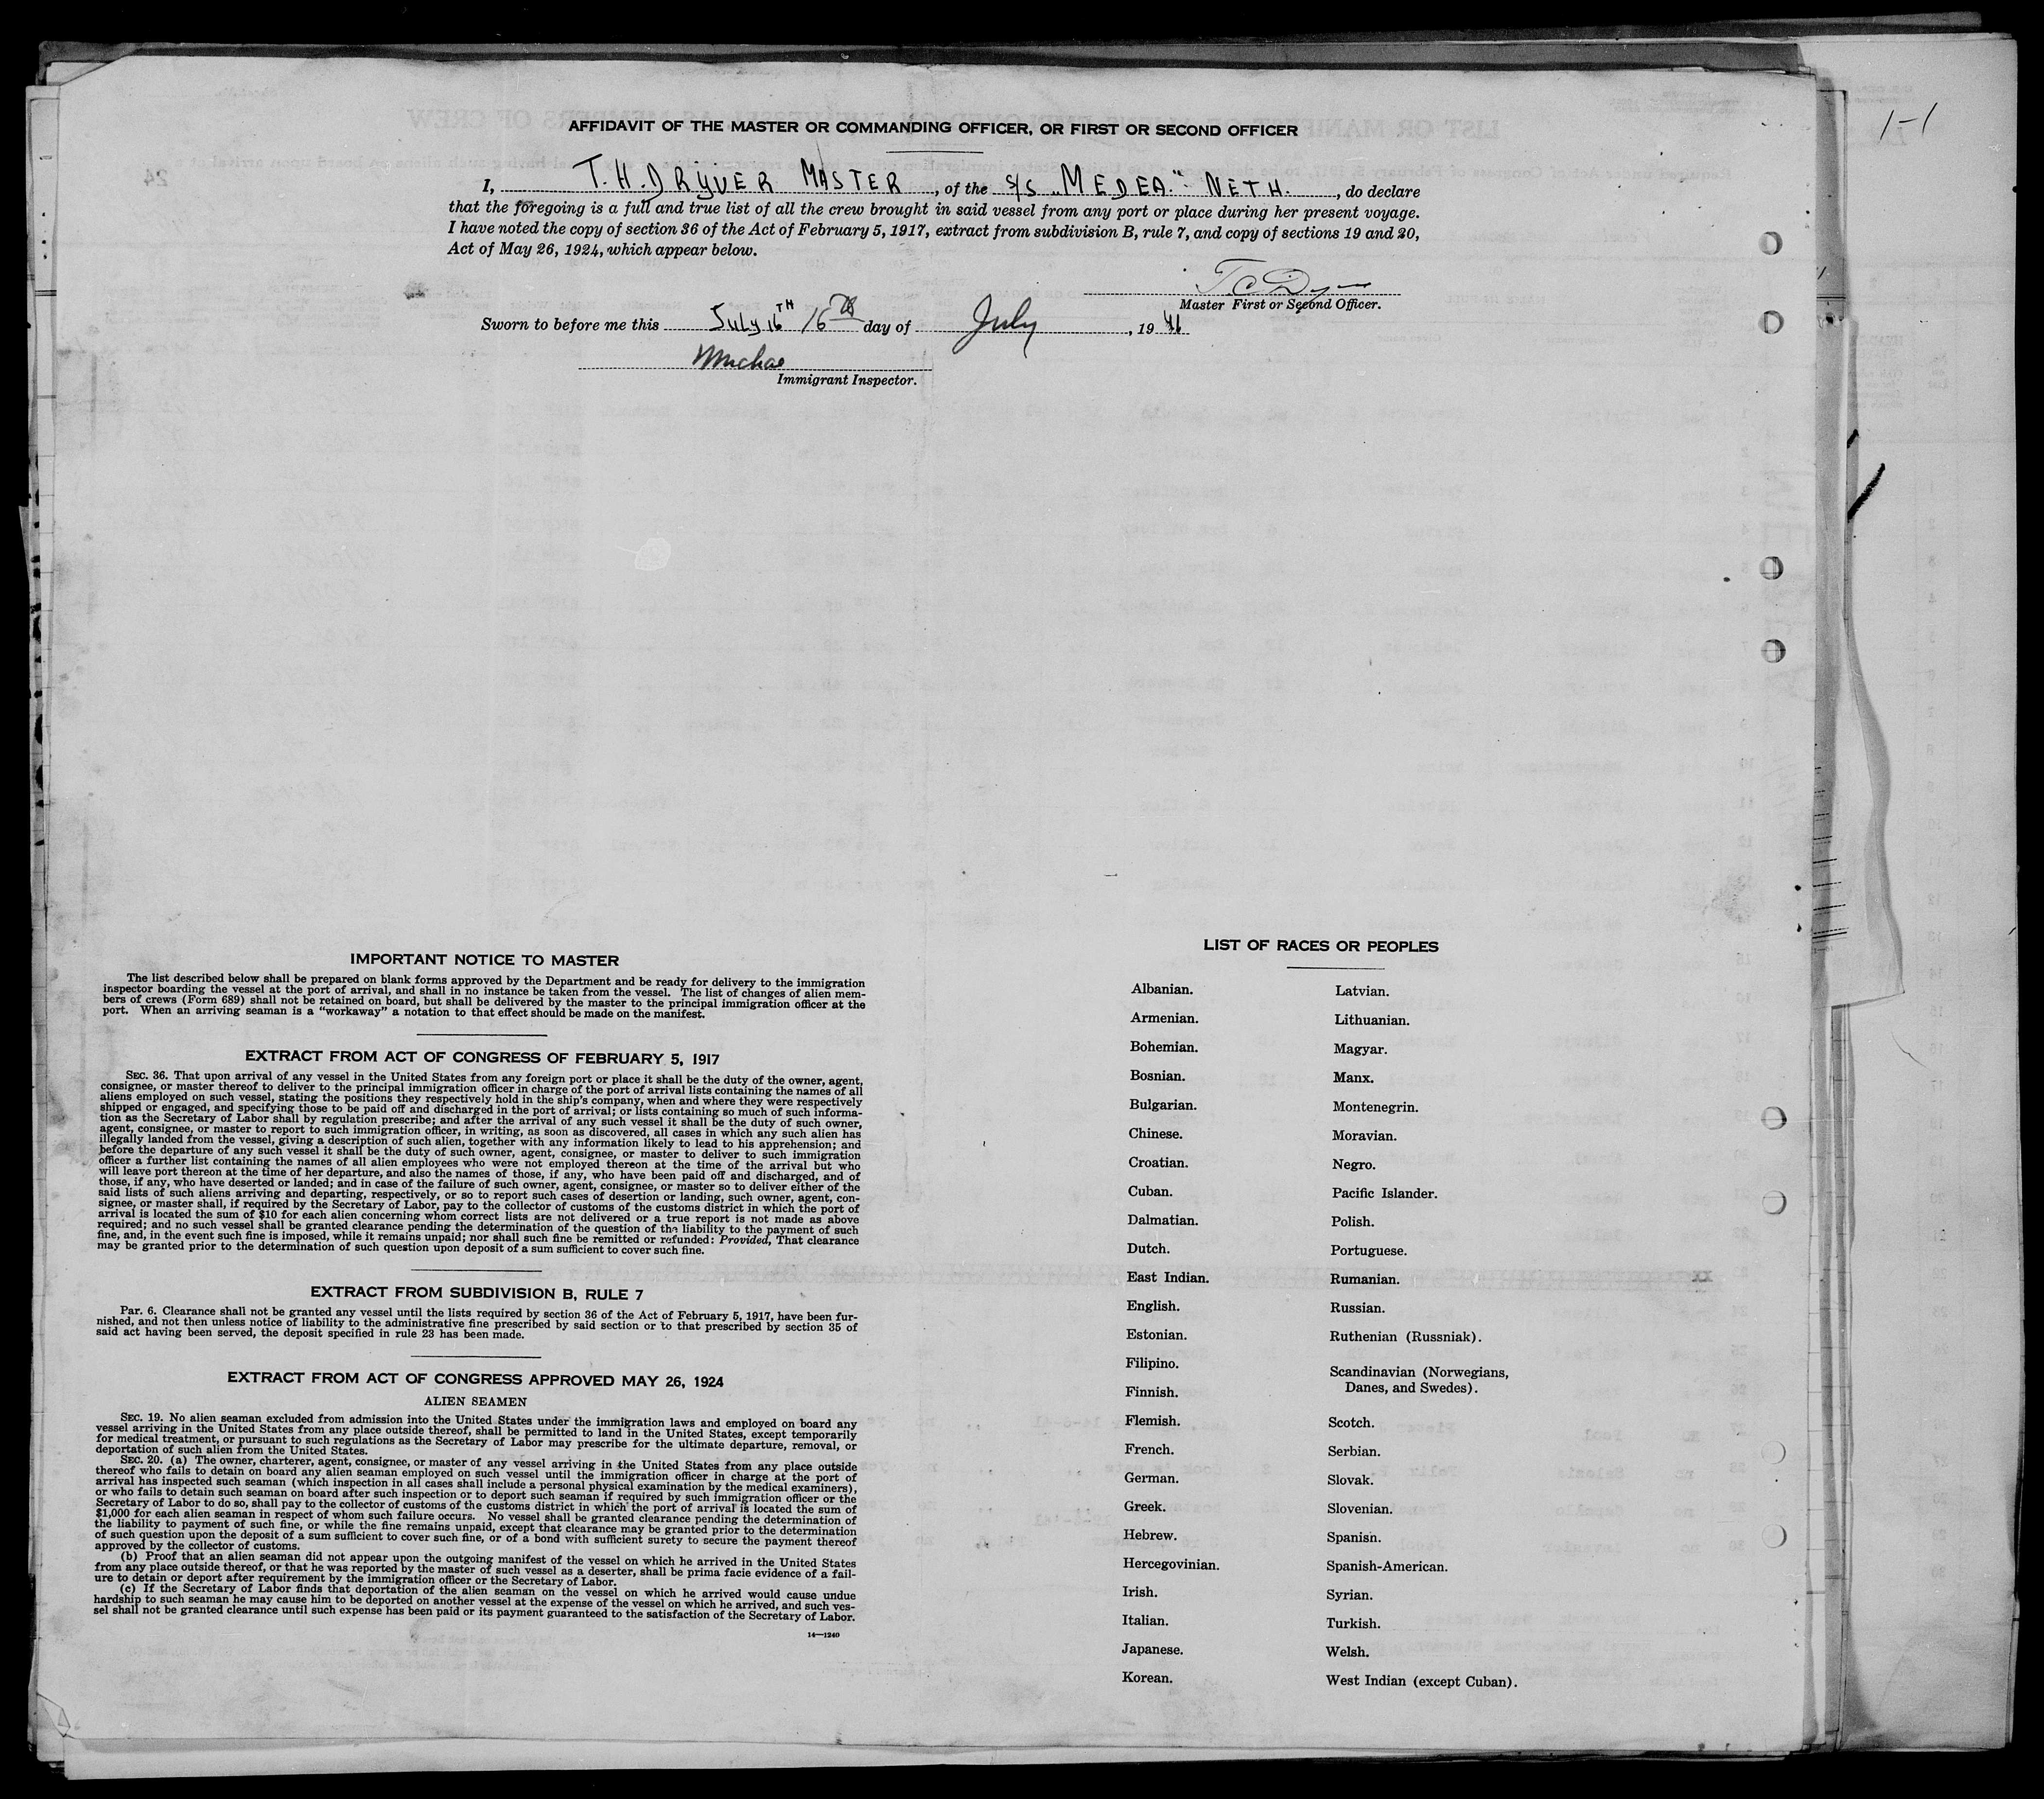 AFFIDAVIT OF THE MASTER OR COMMANDING OFFICER, OR FIRST OR SECOND OFFICER
I, T. H. DRYVER MASTER, of the S/S „MEDEA.“ - NETH., do declare
that the foregoing is a full and true list of all the crew brought in said vessel from any port or place during her present voyage.
I have noted the copy of section 36 of the Act of February 5, 1917, extract from subdivision B, rule 7, and copy of sections 19 and 20,
Act of May 26, 1924, which appear below.
Master First or Second Officer.
Sworn to before me this July 16TH 16th day of July, 1941
Immigrant Inspector.
1-1
IMPORTANT NOTICE TO MASTER
The list described below shall be prepared on blank forms approved by the Department and be ready for delivery to the immigration
inspector boarding the vessel at the port of arrival, and shall in no instance be taken from the vessel. The list of changes of alien mem-
bers of crews (Form 689) shall not be retained on board, but shall be delivered by the master to the principal immigration officer at the
port. When an arriving seaman is a "workaway" a notation to that effect should be made on the manifest.
EXTRACT FROM ACT OF CONGRESS OF FEBRUARY 5, 1917
SEC. 36. That upon arrival of any vessel in the United States from any foreign port or place it shall be the duty of the owner, agent,
consignee, or master thereof to deliver to the principal immigration officer in charge of the port of arrival lists containing the names of all
aliens employed on such vessel, stating the positions they respectively hold in the ship's company, when and where they were respectively
shipped or engaged, and specifying those to be paid off and discharged in the port of arrival; or lists containing so much of such informa-
tion as the Secretary of Labor shall by regulation prescribe; and after the arrival of any such vessel it shall be the duty of such owner,
agent, consignee, or master to report to such immigration officer, in writing, as soon as discovered, all cases in which any such alien has
illegally landed from the vessel, giving a description of such alien, together with any information likely to lead to his apprehension; and
before the departure of any such vessel it shall be the duty of such owner, agent, consignee, or master to deliver to such immigration
officer a further list containing the names of all alien employees who were not employed thereon at the time of the arrival but who
will leave port thereon at the time of her departure, and also the names of those, if any, who have been paid off and discharged, and of
those, if any, who have deserted or landed; and in case of the failure of such owner, agent, consignee, or master so to deliver either of the
said lists of such aliens arriving and departing, respectively, or so to report such cases of desertion or landing, such owner, agent, con-
signee, or master shall, if required by the Secretary of Labor, pay to the collector of customs of the customs district in which the port of
arrival is located the sum of $10 for each alien concerning whom correct lists are not delivered or a true report is not made as above
required; and no such vessel shall be granted clearance pending the determination of the question of the liability to the payment of such
fine, and, in the event such fine is imposed, while it remains unpaid; nor shall such fine be remitted or refunded: Provided, That clearance
may be granted prior to the determination of such question upon deposit of a sum sufficient to cover such fine.
EXTRACT FROM SUBDIVISION B, RULE 7
Par. 6. Clearance shall not be granted any vessel until the lists required by section 36 of the Act of February 5, 1917, have been fur-
nished, and not then unless notice of liability to the administrative fine prescribed by said section or to that prescribed by section 35 of
said act having been served, the deposit specified in rule 23 has been made.
EXTRACT FROM ACT OF CONGRESS APPROVED MAY 26, 1924
ALIEN SEAMEN
SEC. 19. No alien seaman excluded from admission into the United States under the immigration laws and employed on board any
vessel arriving in the United States from any place outside thereof, shall be permitted to land in the United States, except temporarily
for medical treatment, or pursuant to such regulations as the Secretary of Labor may prescribe for the ultimate departure, removal, or
deportation of such alien from the United States.
SEC. 20. (a) The owner, charterer, agent, consignee, or master of any vessel arriving in the United States from any place outside
thereof who fails to detain on board any alien seaman employed on such vessel until the immigration officer in charge at the port of
arrival has inspected such seaman (which inspection in all cases shall include a personal physical examination by the medical examiners),
or who fails to detain such seaman on board after such inspection or to deport such seaman if required by such immigration officer or the
Secretary of Labor to do so, shall pay to the collector of customs of the customs district in which the port of arrival is located the sum of
$1,000 for each alien seaman in respect of whom such failure occurs. No vessel shall be granted clearance pending the determination of
the liability to payment of such fine, or while the fine remains unpaid, except that clearance may be granted prior to the determination
of such question upon the deposit of a sum sufficient to cover such fine, or of a bond with sufficient surety to secure the payment thereof
approved by the collector of customs.
(b) Proof that an alien seaman did not appear upon the outgoing manifest of the vessel on which he arrived in the United States
from any place outside thereof, or that he was reported by the master of such vessel as a deserter, shall be prima facie evidence of a fail-
ure to detain or deport after requirement by the immigration officer or the Secretary of Labor.
(c) If the Secretary of Labor finds that deportation of the alien seaman on the vessel on which he arrived would cause undue
hardship to such seaman he may cause him to be deported on another vessel at the expense of the vessel on which he arrived, and such ves-
sel shall not be granted clearance until such expense has been paid or its payment guaranteed to the satisfaction of the Secretary of Labor.
14—1240
LIST OF RACES OR PEOPLES
Albanian.
Armenian.
Bohemian.
Bosnian.
Bulgarian.
Chinese.
Croatian.
Cuban.
Dalmatian.
Dutch.
East Indian.
English.
Estonian.
Filipino.
Finnish.
Flemish.
French.
German.
Greek.
Hebrew.
Hercegovinian.
Irish.
Italian.
Japanese.
Korean.
Latvian.
Lithuanian.
Magyar.
Manx.
Montenegrin.
Moravian.
Negro.
Pacific Islander.
Polish.
Portuguese.
Rumanian.
Russian.
Ruthenian (Russniak).
Scandinavian (Norwegians,
Danes, and Swedes).
Scotch.
Serbian.
Slovak.
Slovenian.
Spanish.
Spanish-American.
Syrian.
Turkish.
Welsh.
West Indian (except Cuban).